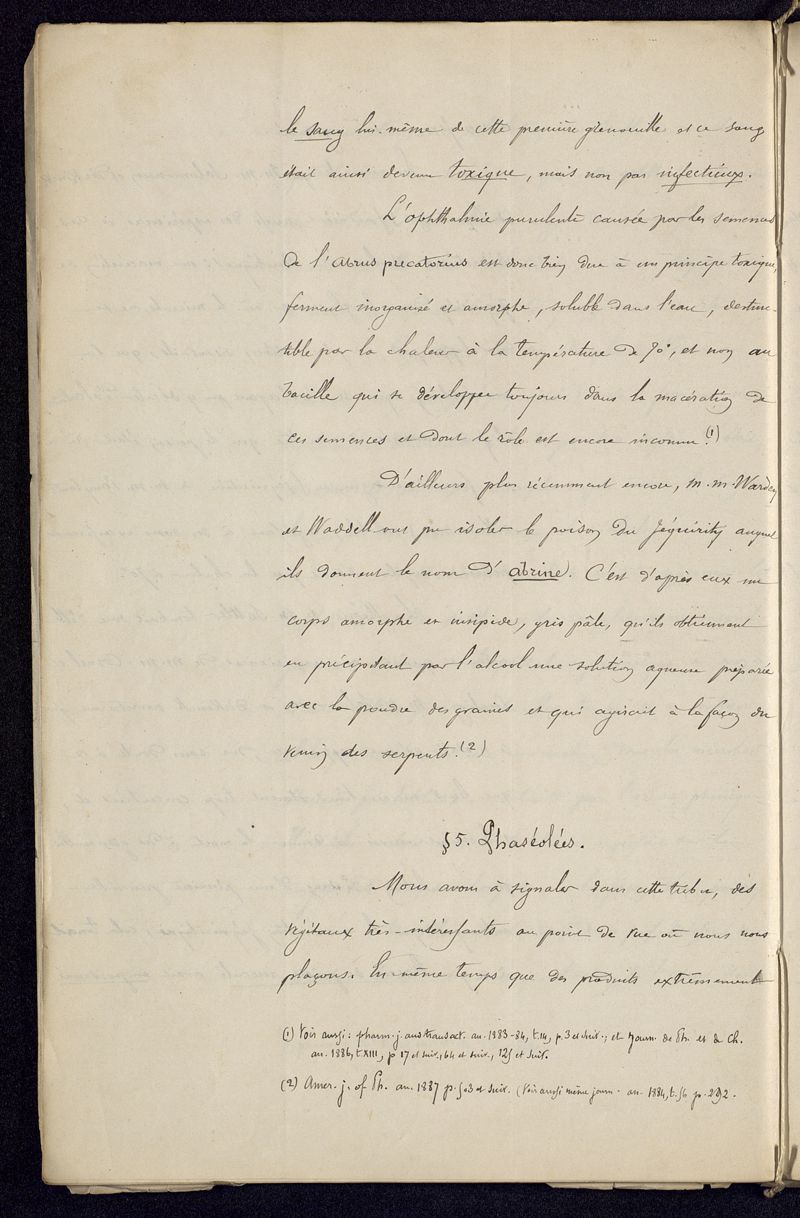 le sang lui-même de cette première grenouille et ce sang
était ainsi devenu toxique, mais non pas infectieux.
L'ophthalmie purulente causée par les semences
de l'Abrus precatorius est donc bien due à un principe toxique,
ferment inorganisé et amorphe, soluble dans l'eau, destruc-
tible par la chaleur à la température de 70°, et non au
bacille qui se développe toujours dans la macération de
ces semences et dont le rôle est encore inconnu.(1)
D'ailleurs plus récemment encore, M.M. Warden
et Waddell ont pu isoler le poison du Jéquirity auquel
ils donnent le nom d'abrine. C'est d'après eux un
corps amorphe et insipide, gris pâle, qu'ils obtiennent
en précipitant par l'alcool une solution aqueuse préparée
avec la poudre des graines et qui agirait à la façon du
venin des serpents.(2)
§5. Phaséolées.
Nous avons à signaler dans cette tribu, des
végétaux très-intéressants au point de vue où nous nous
plaçons. En même temps que des produits extrêmement
(1) Voir aussi: pharm. j. and transact. an. 1883-84, t.14, p. 3 et suiv.; et Journ. de Ph. et de Ch.
an. 1886, t.XIII, p 17 et suiv., 64 et suiv., 125 et suiv.
(2) Amer. j. of Ph. an. 1887 p. 503 et suiv. (Voir aussi même journ. an. 1884, t.56 p. 292.